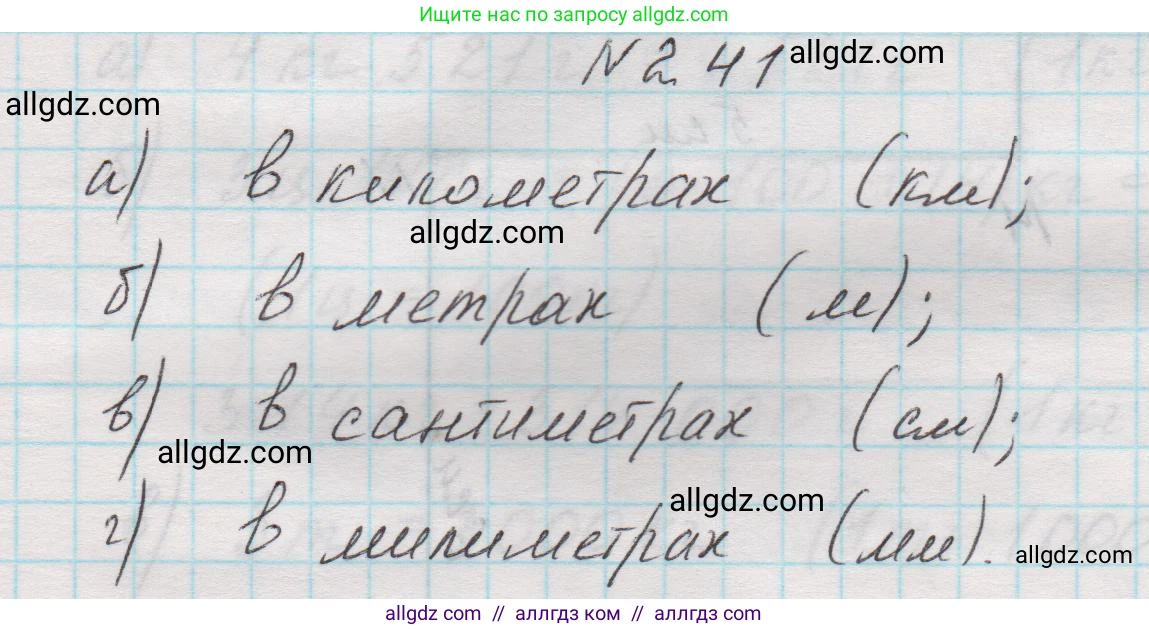 Ищите нас по запросу allgdz.com
N 2.41 allgdz.com
allgdz.com
а) в километрах (км);
allgdz.com
б) в метрах (м);
в) в сантиметрах (см);
allgdz.com
allgdz.com
г) в милиметрах (мм).
allgdz.com
allgdz com // аллгдз ком // аллгдз com